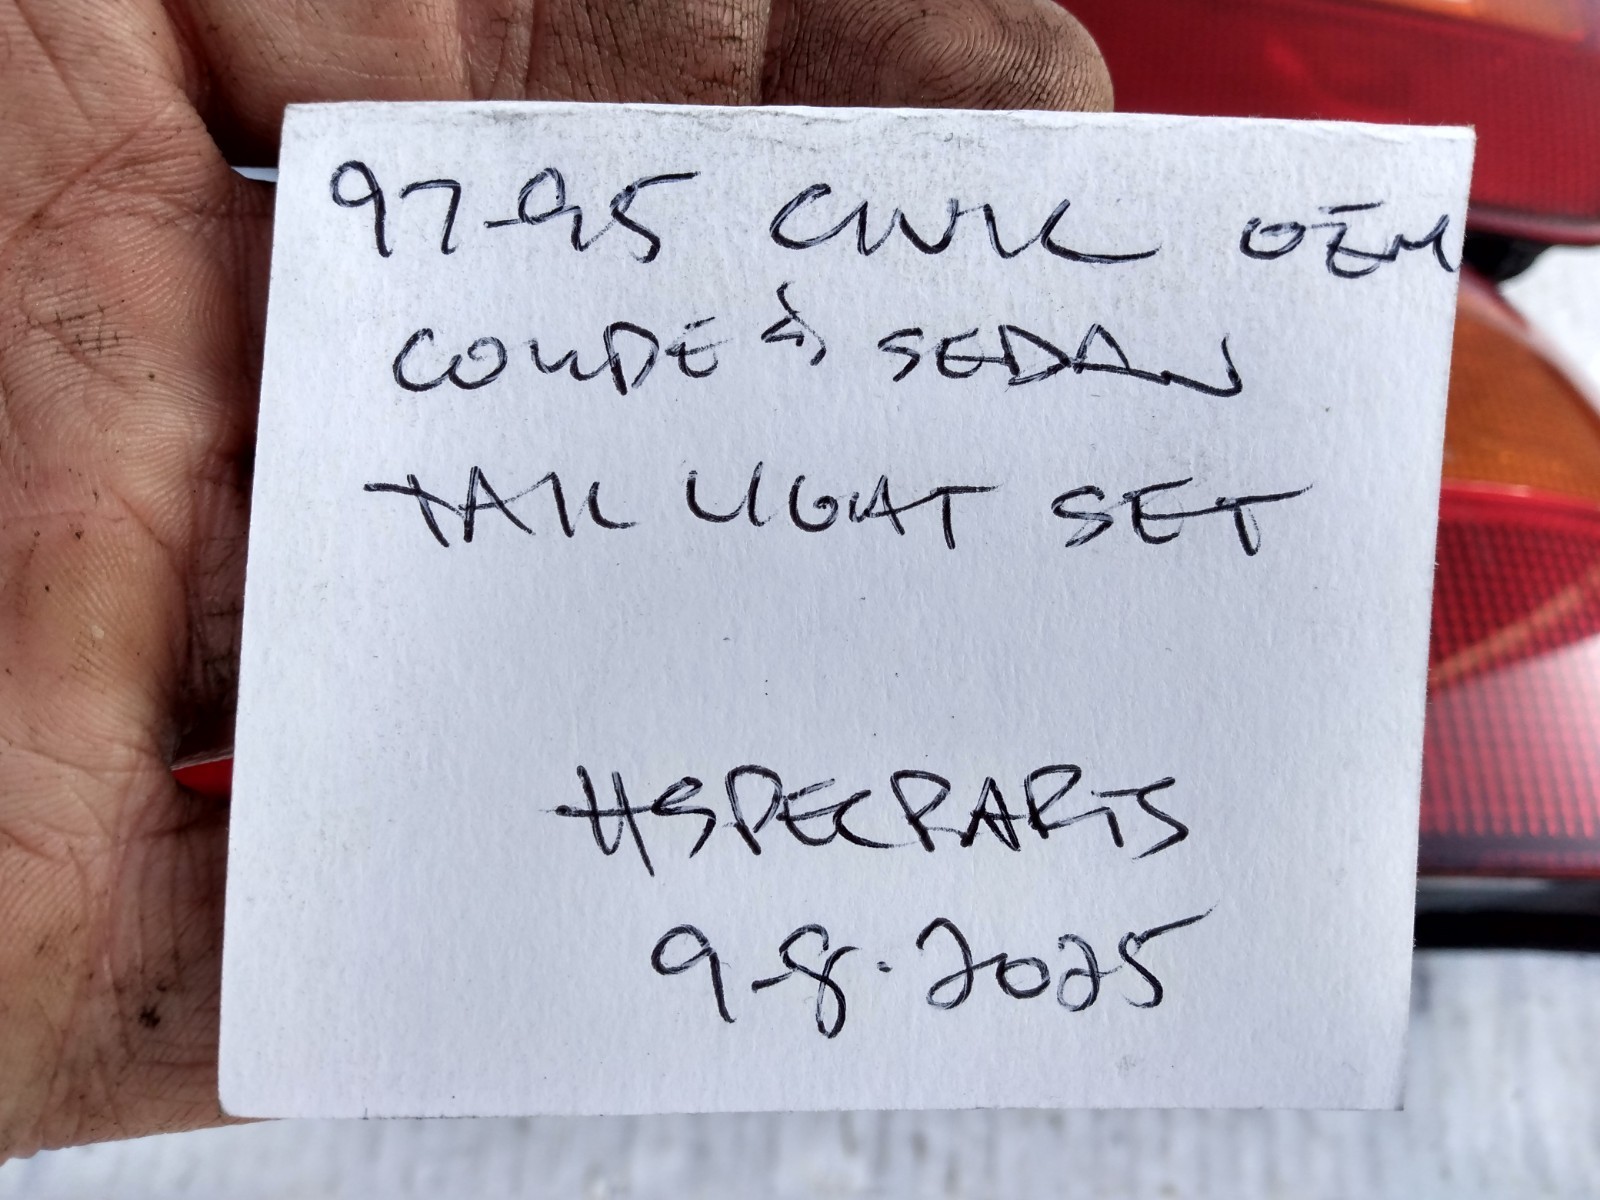 97-95 CIVIC OEM
COUPE & SEDAN
TAIL LIGHT SET
HSPECPARTS
9-8-2025